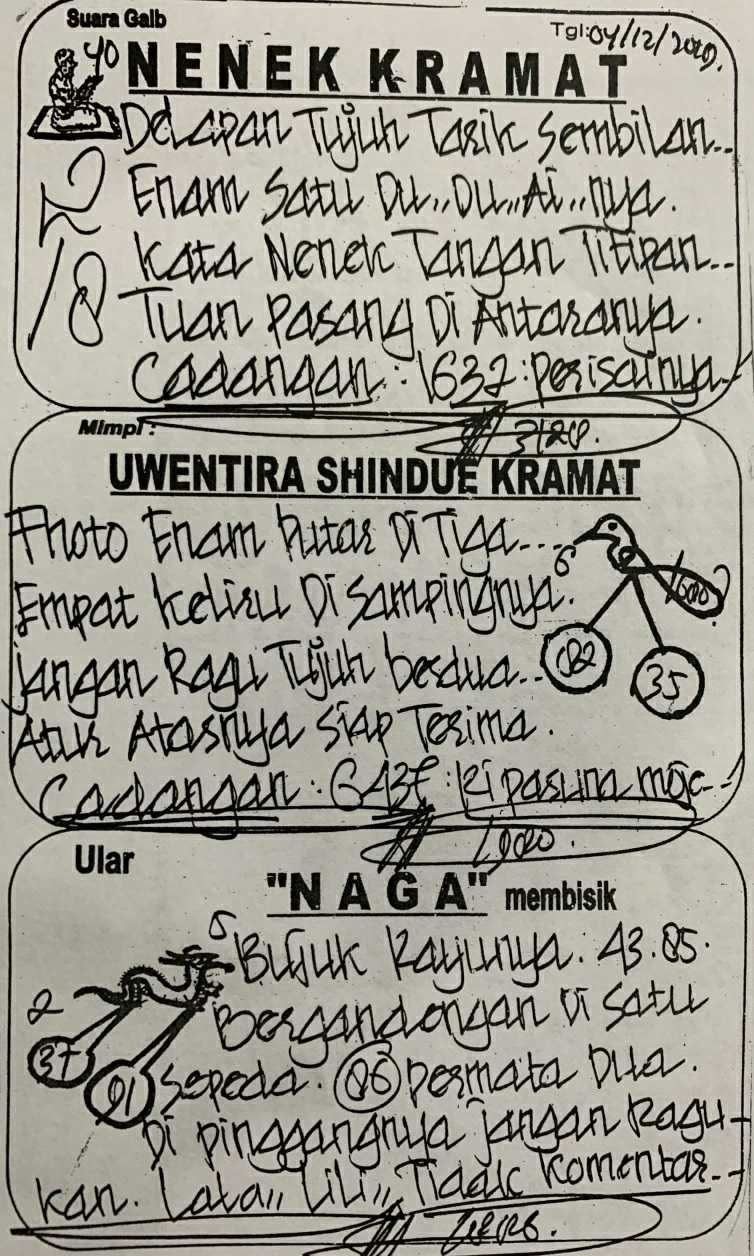 Suara Galb
Tgl: 04/12/2020.
40
NENEK KRAMAT
Delapan Tujuh Tarik Sembilan..
Enam Satu Du,,Du,,Ai,,nya.
Kata Nenek Tangan Titipan..
Tuan Pasang Di Antaranya.
Cadangan : 1632 : Perisainya
18
Mimpi :
UWENTIRA SHINDUE KRAMAT
Fhoto Enam Putar Di Tiga...
6
Empat Keliru Di Sampingnya.
Jangan Ragu Tujuh berdua..
82
35
Atur Atasnya Siap Terima.
Cadangan :
Ular
"NAGA" membisik
5
Bujuk Rayunya : 43.85.
2
Bergandengan Di Satu
37
91
Sepeda. 86 Permata Dua.
Di Pinggangnya Jangan Ragu-
kan. Lala,, Lili,, Tidak Komentar..